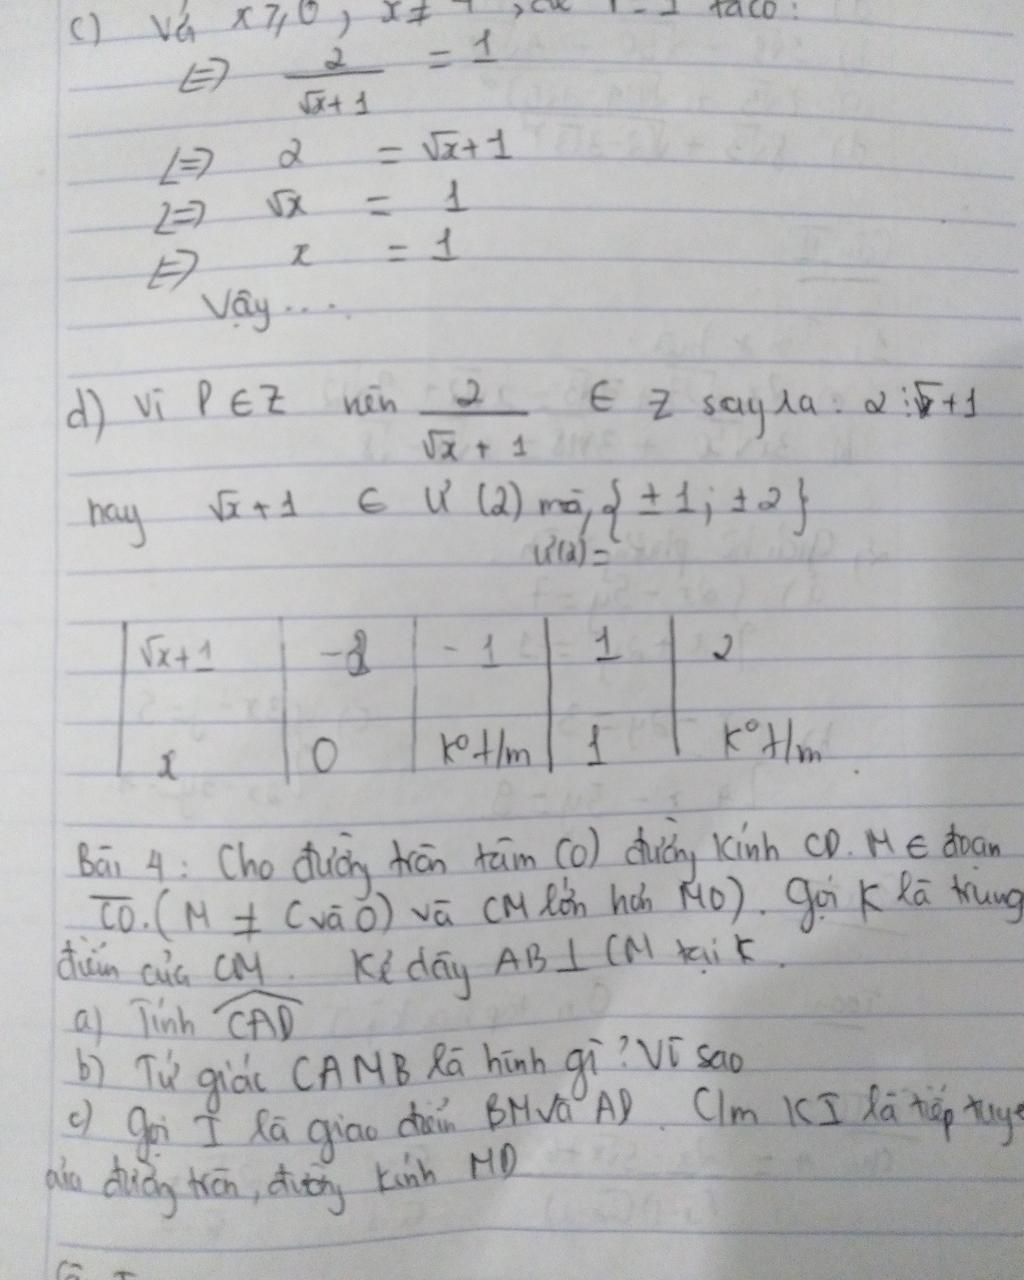 c) Với x ≥ 0, x ≠ , để P = 1 ta có:
⇔ 2/(√x+1) = 1
⇔ 2 = √x+1
⇔ √x = 1
⇔ x = 1
Vậy....
d) Vì P ∈ Z nên 2/(√x + 1) ∈ Z say ra: 2 ⋮ √x+1
hay √x+1 ∈ Ư (2) mà, { ±1; ±2}
Ư(2) =
√x+1 -2 -1 1 2
x 0 K° t/m 1 K° t/m
Bài 4: Cho đường tròn tâm (O) đường kính CD. M ∈ đoạn
CO. (M ≠ C và O) và CM lớn hơn MO). Gọi K là trung
điểm của CM. Kẻ dây AB ⊥ CM tại K.
a) Tính CAD
b) Tứ giác CAMB là hình gì? Vì sao
c) Gọi I là giao điểm BM và AD. C/m KI là tiếp tuyế
của đường tròn, đường kính MD